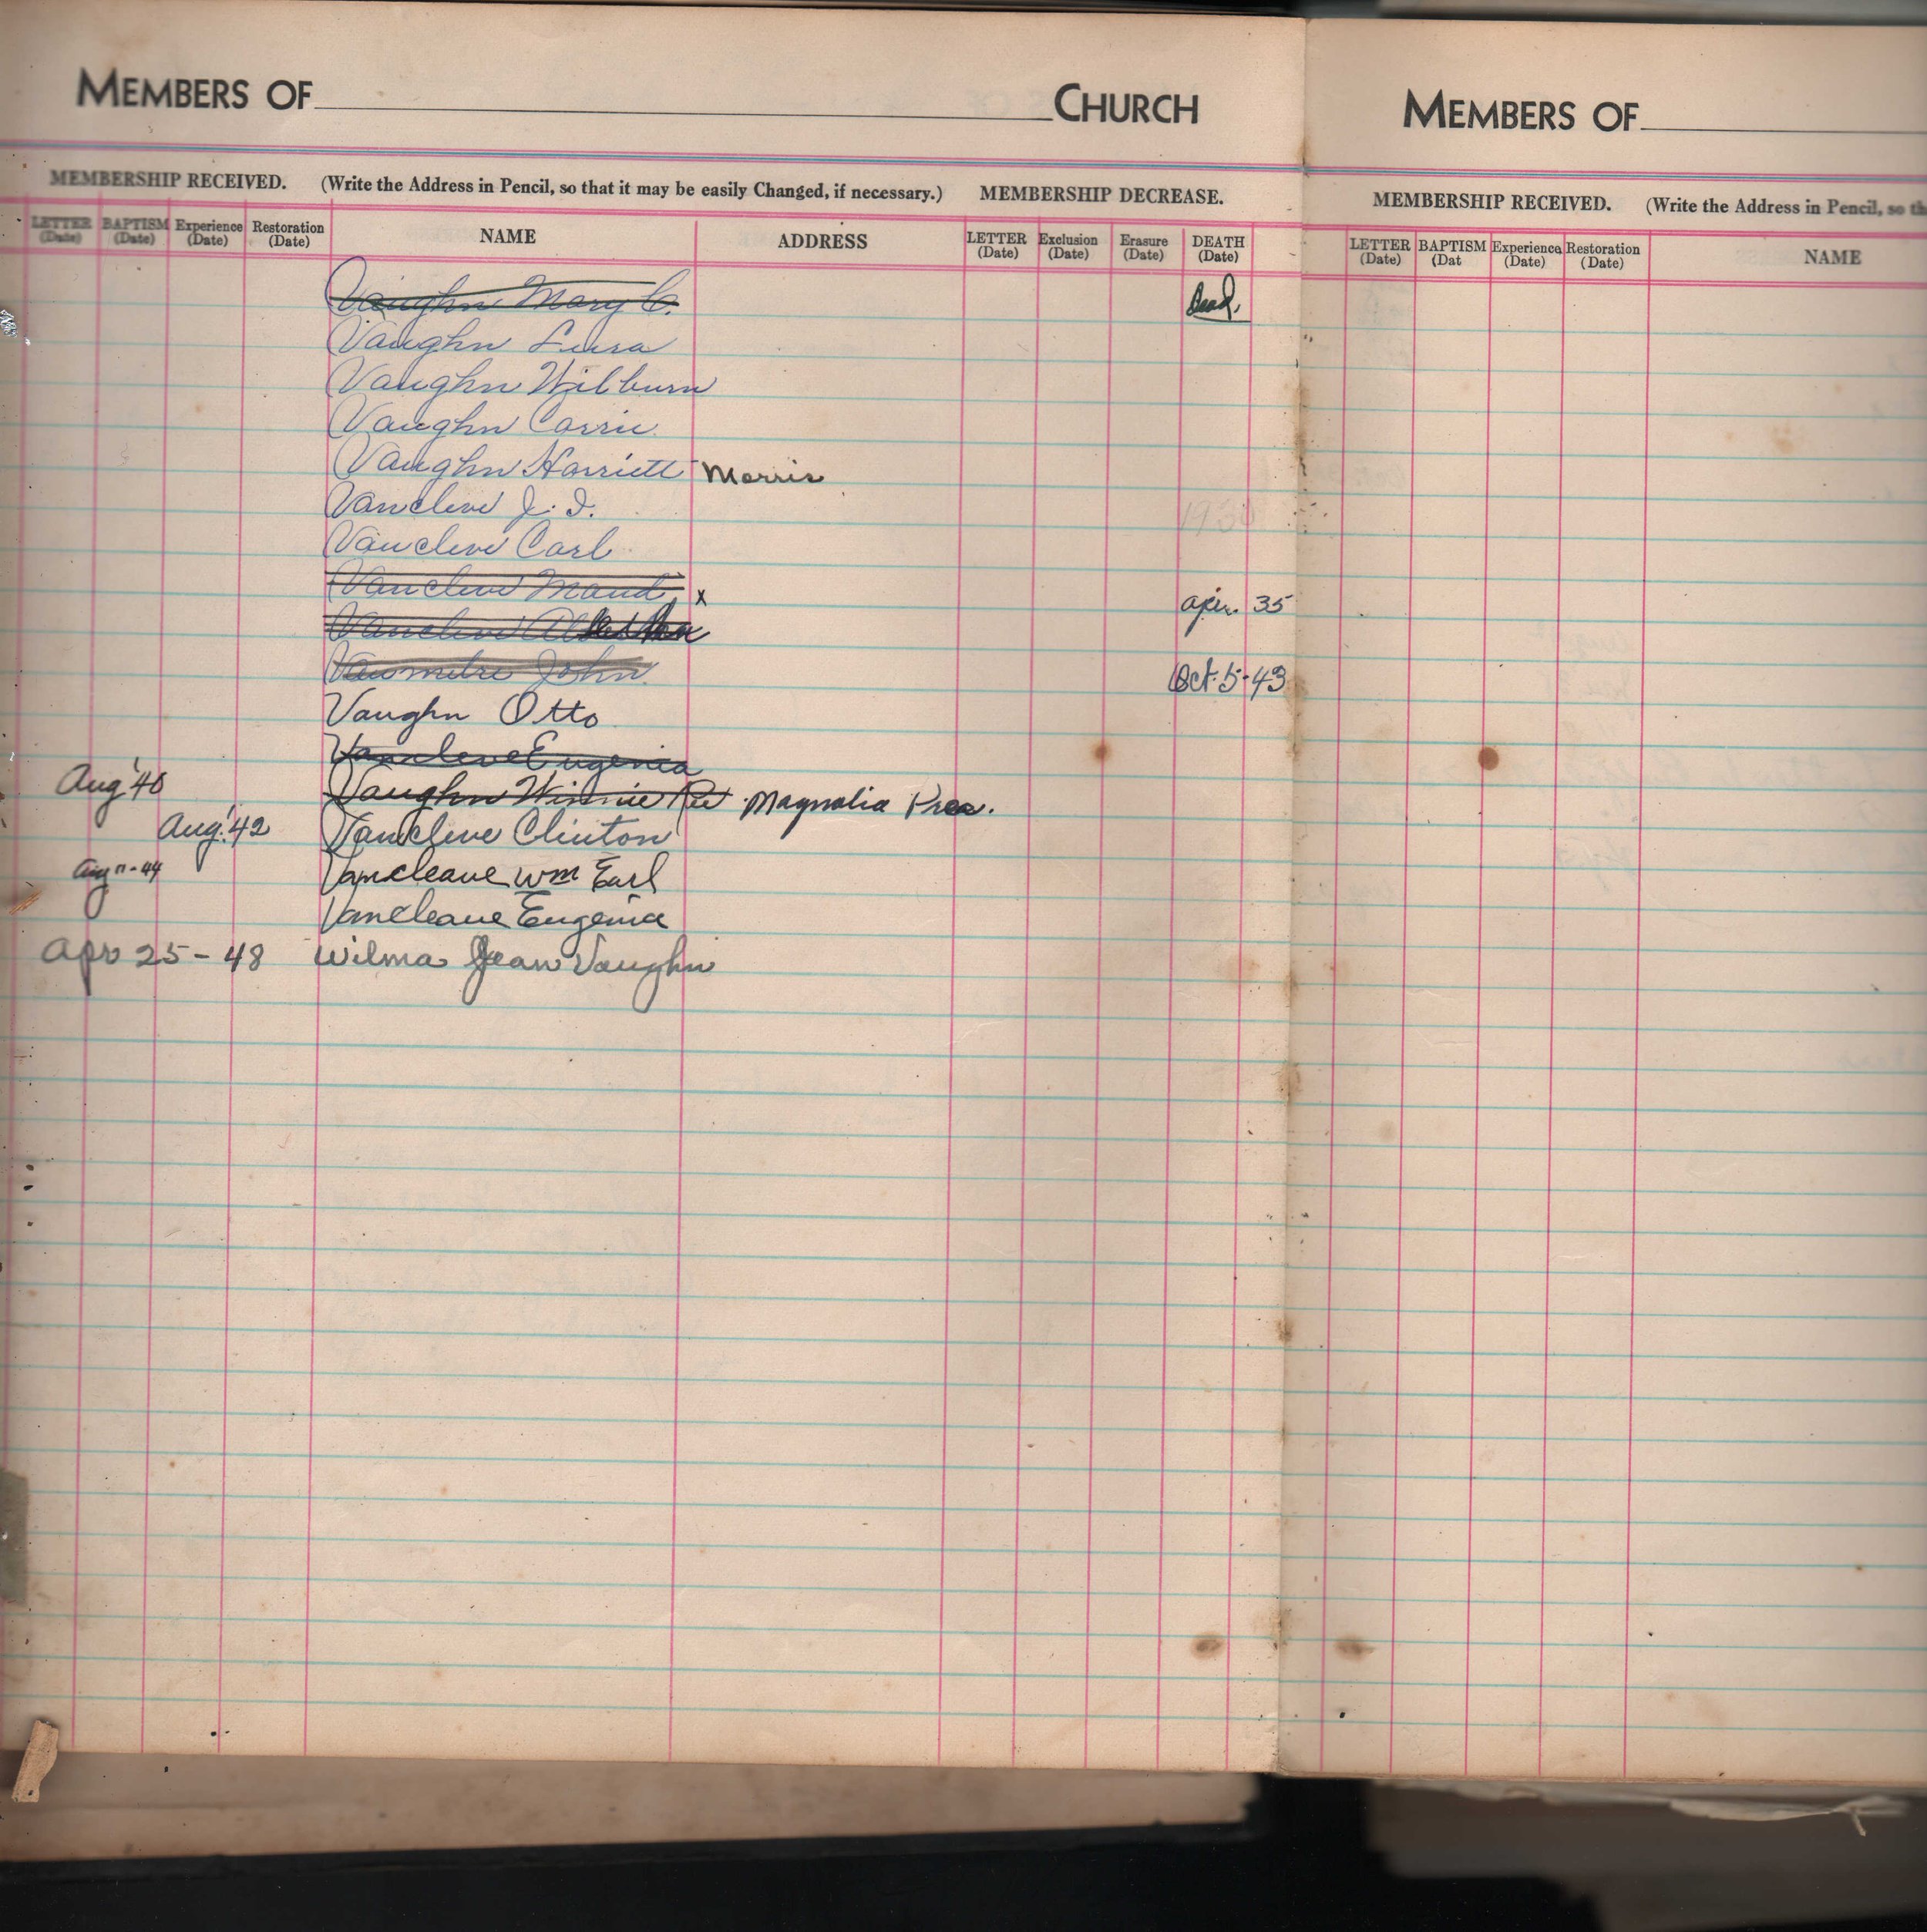 MEMBERS OF CHURCH
MEMBERSHIP RECEIVED. (Write the Address in Pencil, so that it may be easily Changed, if necessary.) MEMBERSHIP DECREASE.
LETTER (Date) BAPTISM (Date) Experience (Date) Restoration (Date) NAME ADDRESS LETTER (Date) Exclusion (Date) Erasure (Date) DEATH (Date)
Vaughn Mary C. Dead.
Vaughn Lura
Vaughn Wilburn
Vaughn Carrie
Vaughn Harriett Morris
Vancleve J. I. 1930
Vancleve Carl
Vancleve Maud x apr. 35
Vancleve
Vanmetre John Oct. 5-43
Vaughn Otto
Vancleve Eugenia
Aug '40 Vaughn Winnie Ree Magnolia Pres.
Aug. '42 Vancleve Clinton
Aug 11-44 Vancleave Wm Earl
Vancleave Eugenia
Apr 25-48 Wilma Jean Vaughn
MEMBERS OF
MEMBERSHIP RECEIVED. (Write the Address in Pencil, so th
LETTER (Date) BAPTISM (Dat Experience (Date) Restoration (Date) NAME